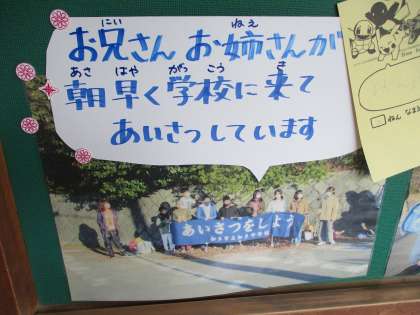 お兄さん お姉さんが
にい ねえ
朝早く学校に来て
あさ はや がっ こう き
あいさつしています
あいさつをしよう
ねん